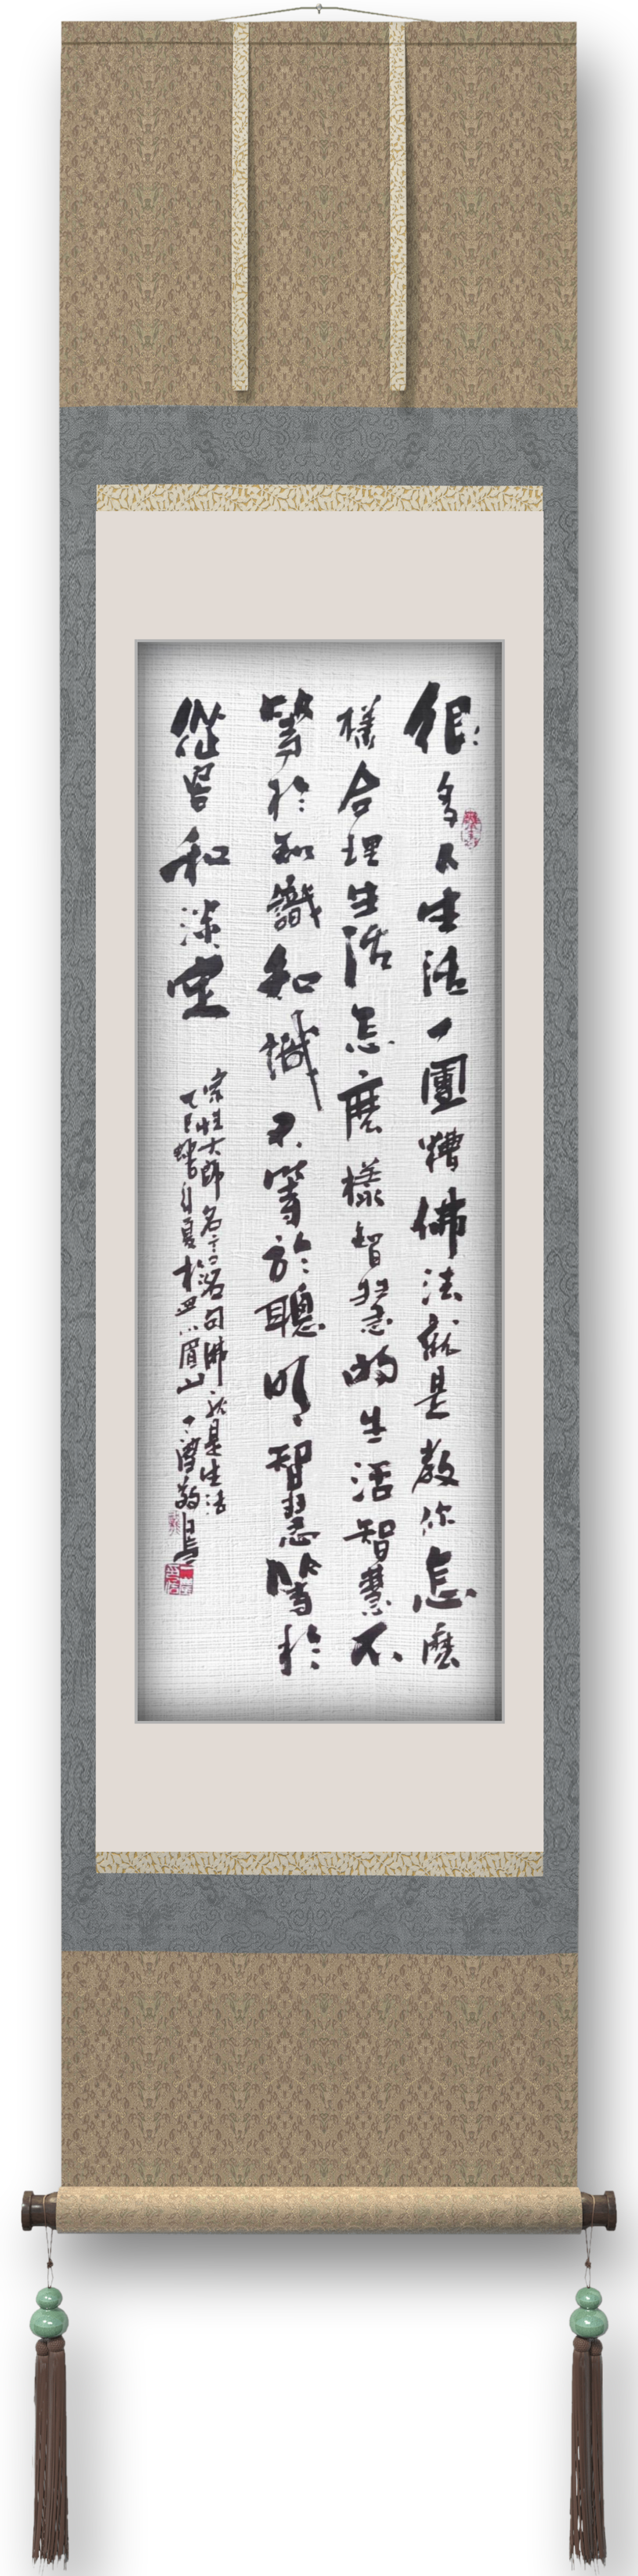 很多人生活一團糟佛法就是教你怎麽
樣合理生活怎麽樣智慧的生活智慧不
等於知識知識不等於聰明智慧等於
從容和淡定
宗性大師名言名句佛法就是生活
乙巳蛇年夏於四川眉山